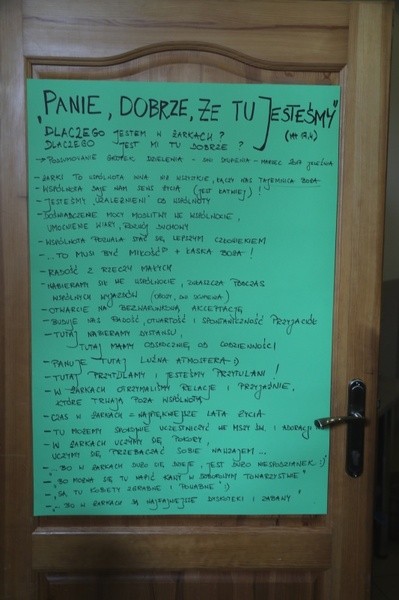 „PANIE, DOBRZE, ŻE TU JESTEŚMY"
(Mt 17,4)
DLACZEGO JESTEM W ŻARKACH?
DLACZEGO JEST MI TU DOBRZE?
→ PODSUMOWANIE GRUPEK DZIELENIA - DNI SKUPIENIA - MARZEC 2017
- ŻARKI TO WSPÓLNOTA INNA NIŻ WSZYSTKIE, ŁĄCZY NAS TAJEMNICA BOGA
- WSPÓLNOTA DAJE NAM SENS ŻYCIA (JEST ŁATWIEJ)!
- JESTEŚMY „UZALEŻNIENI" OD WSPÓLNOTY
- DOŚWIADCZENIE MOCY MODLITWY WE WSPÓLNOCIE,
UMOCNIENIE WIARY, ROZWÓJ DUCHOWY
- WSPÓLNOTA POZWALA STAĆ SIĘ LEPSZYM CZŁOWIEKIEM
- ... TO MUSI BYĆ MIŁOŚĆ + ŁASKA BOGA!
- RADOŚĆ Z RZECZY MAŁYCH
- NABIERAMY SIŁ WE WSPÓLNOCIE, ZWŁASZCZA PODCZAS
WSPÓLNYCH WYJAZDÓW (OBOZY, DNI SKUPIENIA)
- OTWARCIE NA BEZWARUNKOWĄ AKCEPTACJĘ
- BUDUJE NAS RADOŚĆ, OTWARTOŚĆ I SPONTANICZNOŚĆ PRZYJACIÓŁ
- TUTAJ NABIERAMY DYSTANSU,
TUTAJ MAMY ODSKOCZNIĘ OD CODZIENNOŚCI
- PANUJE TUTAJ LUŹNA ATMOSFERA :)
- TUTAJ PRZYTULAMY I JESTEŚMY PRZYTULANI!
- W ŻARKACH OTRZYMALIŚMY RELACJE I PRZYJAŹNIE,
KTÓRE TRWAJĄ POZA WSPÓLNOTĄ
- CZAS W ŻARKACH = NAJPIĘKNIEJSZE LATA ŻYCIA
- TU MOŻEMY SPOKOJNIE UCZESTNICZYĆ WE MSZY ŚW. I ADORACJI
- W ŻARKACH UCZYMY SIĘ POKORY,
UCZYMY SIĘ PRZEBACZAĆ SOBIE NAWZAJEM...
- „BO W ŻARKACH DUŻO SIĘ DZIEJE, JEST DUŻO NIESPODZIANEK :)"
- „BO MOŻNA SIĘ TU NAPIĆ KAWY W DOBOROWYM TOWARZYSTWIE"
- „SĄ TU KOBIETY ZGRABNE I POWABNE" :)
- „BO W ŻARKACH SĄ NAJFAJNIEJSZE I ZABAWY"